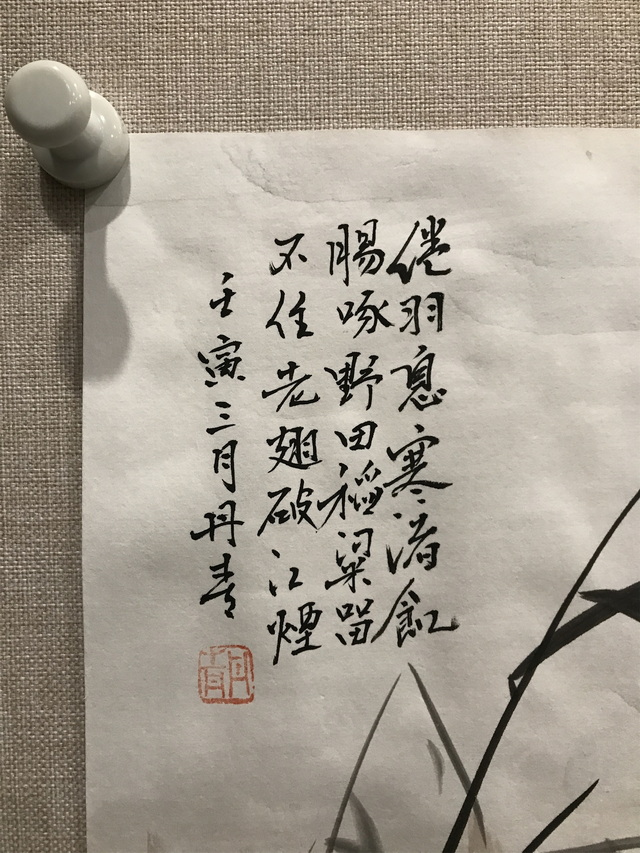 倦羽息寒渚飢
腸啄野田稻粱留
不住老翅破江煙
壬寅三月丹青
丹青